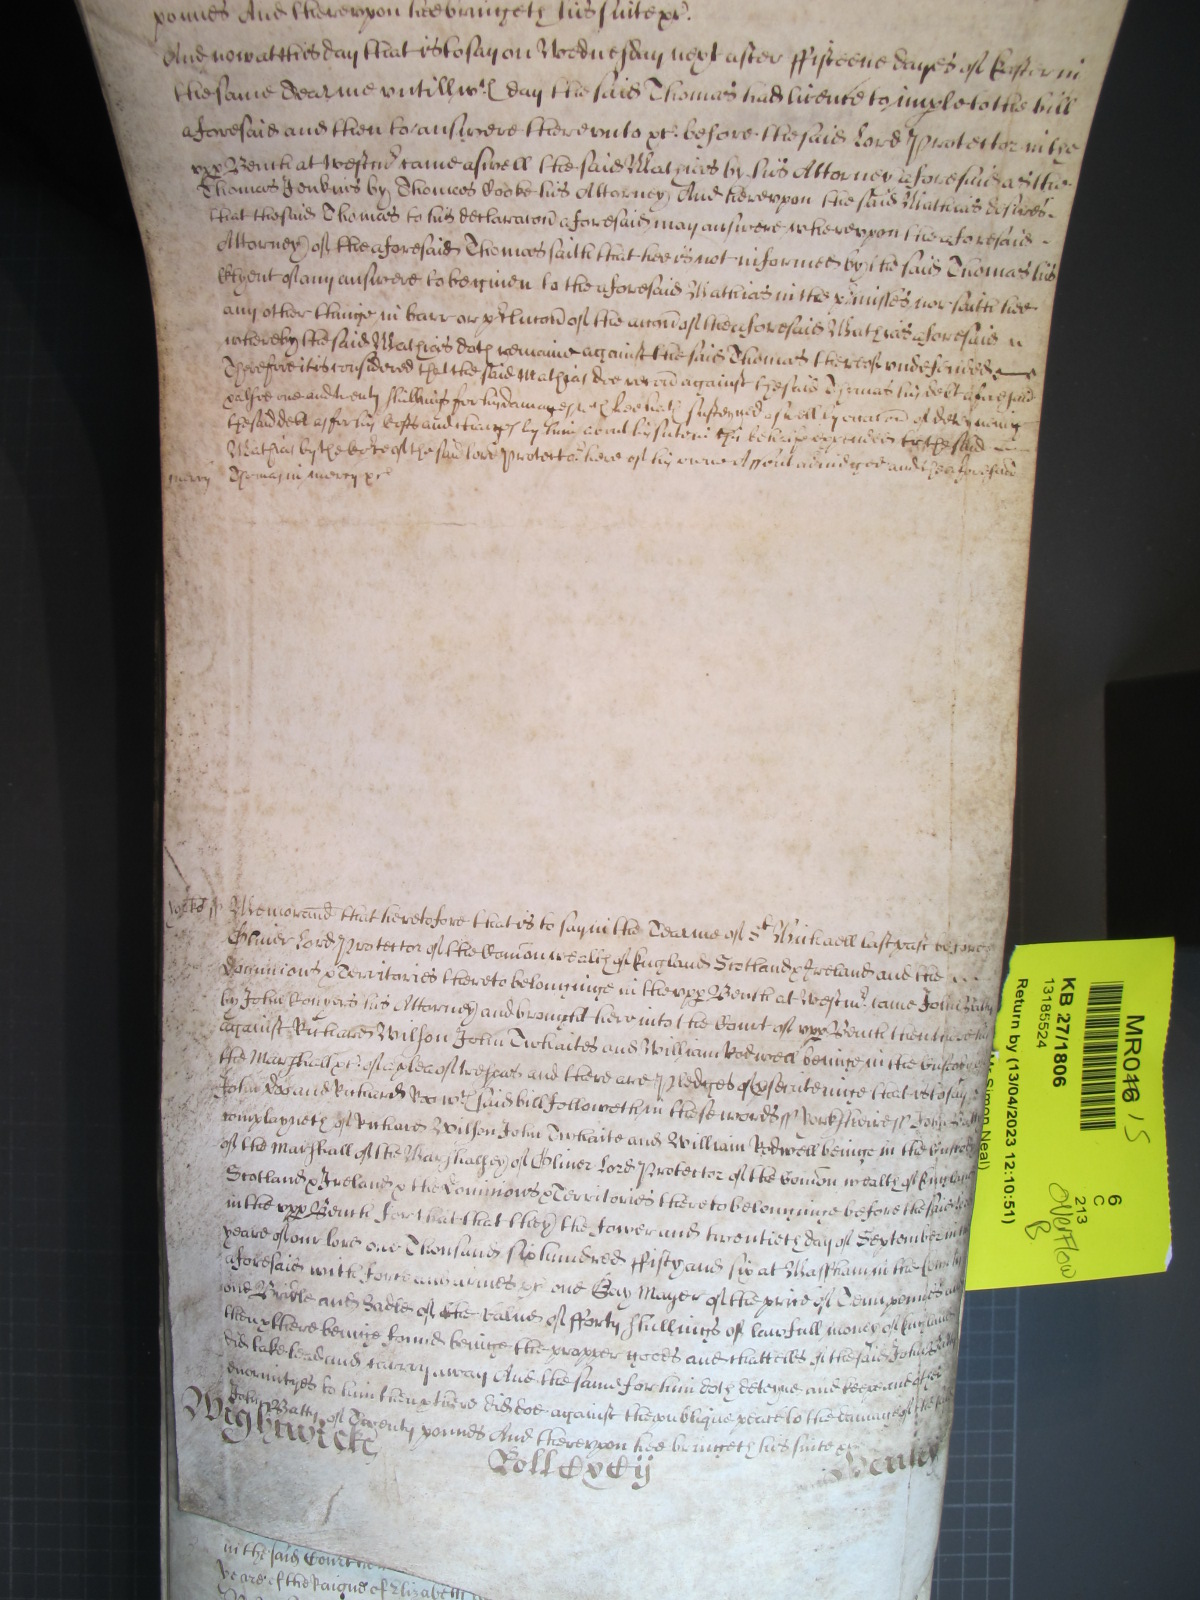 pounds And thereupon hee bringeth his suite &c.
And now at this day that is to say on Wednesday next after ffifteene dayes of Easter in
the same Tearme untill wch day the said Thomas had licence to imple to the bill
aforesaid and then to answere thereunto &c. before the said Lord Protector in the
upp Bench at Westmr came aswell the said Mathias by his Attorney aforesaid as the
Thomas Jenkins by Thomas Cooke his Attorney And hereupon the said Mathias desires
that the said Thomas to his declaracon aforesaid may answere whereupon the aforesaid
Attorney of the aforesaid Thomas saith that hee is not informed by the said Thomas his
Clyent of any answere to be given to the aforesaid Mathias in the pmisses nor saith hee
any other thinge in barr or pclucon of the accon of the aforesaid Mathias aforesaid
whereby the said Mathias doth remaine against the said Thomas thereof undefended
Therefore it is considered that the said Mathias doe recou against the said Thomas his debt aforesaid
& alsoe one and twenty shillings for his damages wch hee hath susteyned aswell by occacon of deteyneing
the said debt as for his Costs and charges by him about his suite in this behalfe expended to the said
Mathias by the Co:te of the said Lord Protector here of his owne Assent adiudged and the aforesaid
mercy Thomas in mercy &c
Yorks ss Memorand that heretofore that is to say in the Tearme of St Michaell last past before
Oliver Lord Protector of the Comonwealth of England Scotland & Ireland and the
Dominions & Territories thereto belonginge in the upp Bench at Westmr. came John Batty
by John Conyers his Attorney and brought here into the Court of upp Bench then there his
against Richard Wilson John Twhaites and William Rodwell beinge in the Custody of
the Marshall &c. of a plea of trespas and there are Pledges of &secuteinge that is to say
John Doo and Richard Roo wch said bill followeth in these words ss Yorkshire ss John Batty
complayneth of Richard Wilson John Twhaite and William Rodwell beinge in the Custody
of the Marshall of the Marshalsey of Oliver Lord Protector of the Comon wealth of England
Scotland & Ireland & the Dominions & Territories thereto belonginge before the said Lord
in the upp Bench for that that they the fower and twentieth day of September in the
yeare of our lord one Thousand six hundred ffifty and six at Massham in the County
aforesaid with force and armes &c one Bay Mayer of the price of Tenn pounds and
one Bridle and Sadle of the value of fforty shillings of lawfull money of England
then & there beinge found beinge the propper goods and chattells of the said John Batty
did take lead and carry away And the same for him doth deteyne and keepe and other
enormityes to him then & there did doe against the publique peace to the damage of the said
John Batty of Twenty pounds And thereupon hee bringeth his suite &c
Wightwicke
Roll Cxcij
Henley
in the said Court
yeare of the Raigne of Elizabeth
MR046 / 15
KB 27/1806
13185524
Return by (13/04/2023 12:10:51)
Simon Neal)
6
C
213
Overflow
B